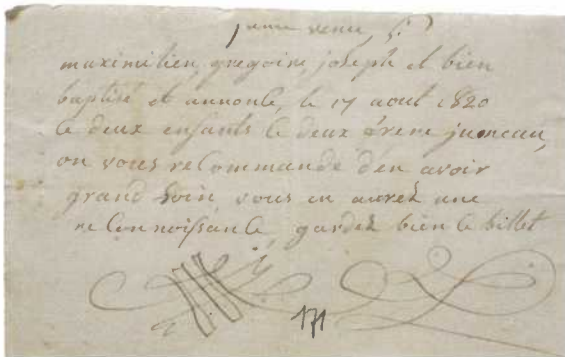 maximilien, gregoire, joseph et bien
baptisé et annonle, le 17 aout 1820
le deux enfants le deux frere jumeau,
on vous relommande den avoir
grand soin vous en aurez une
relonnoissanle gardez bien le billet
171